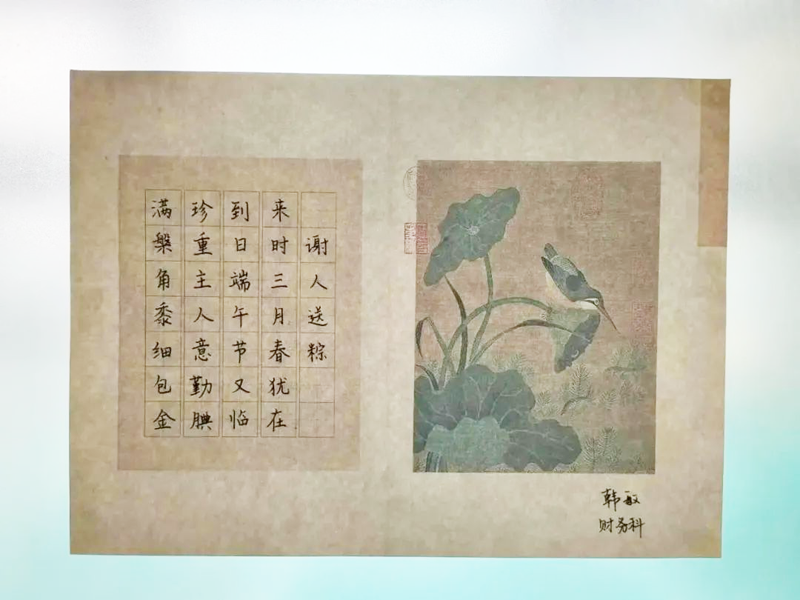 谢人送粽
来时三月春犹在
到日端午节又临
珍重主人意勤腆
满槃角黍细包金
韩敏
财务科